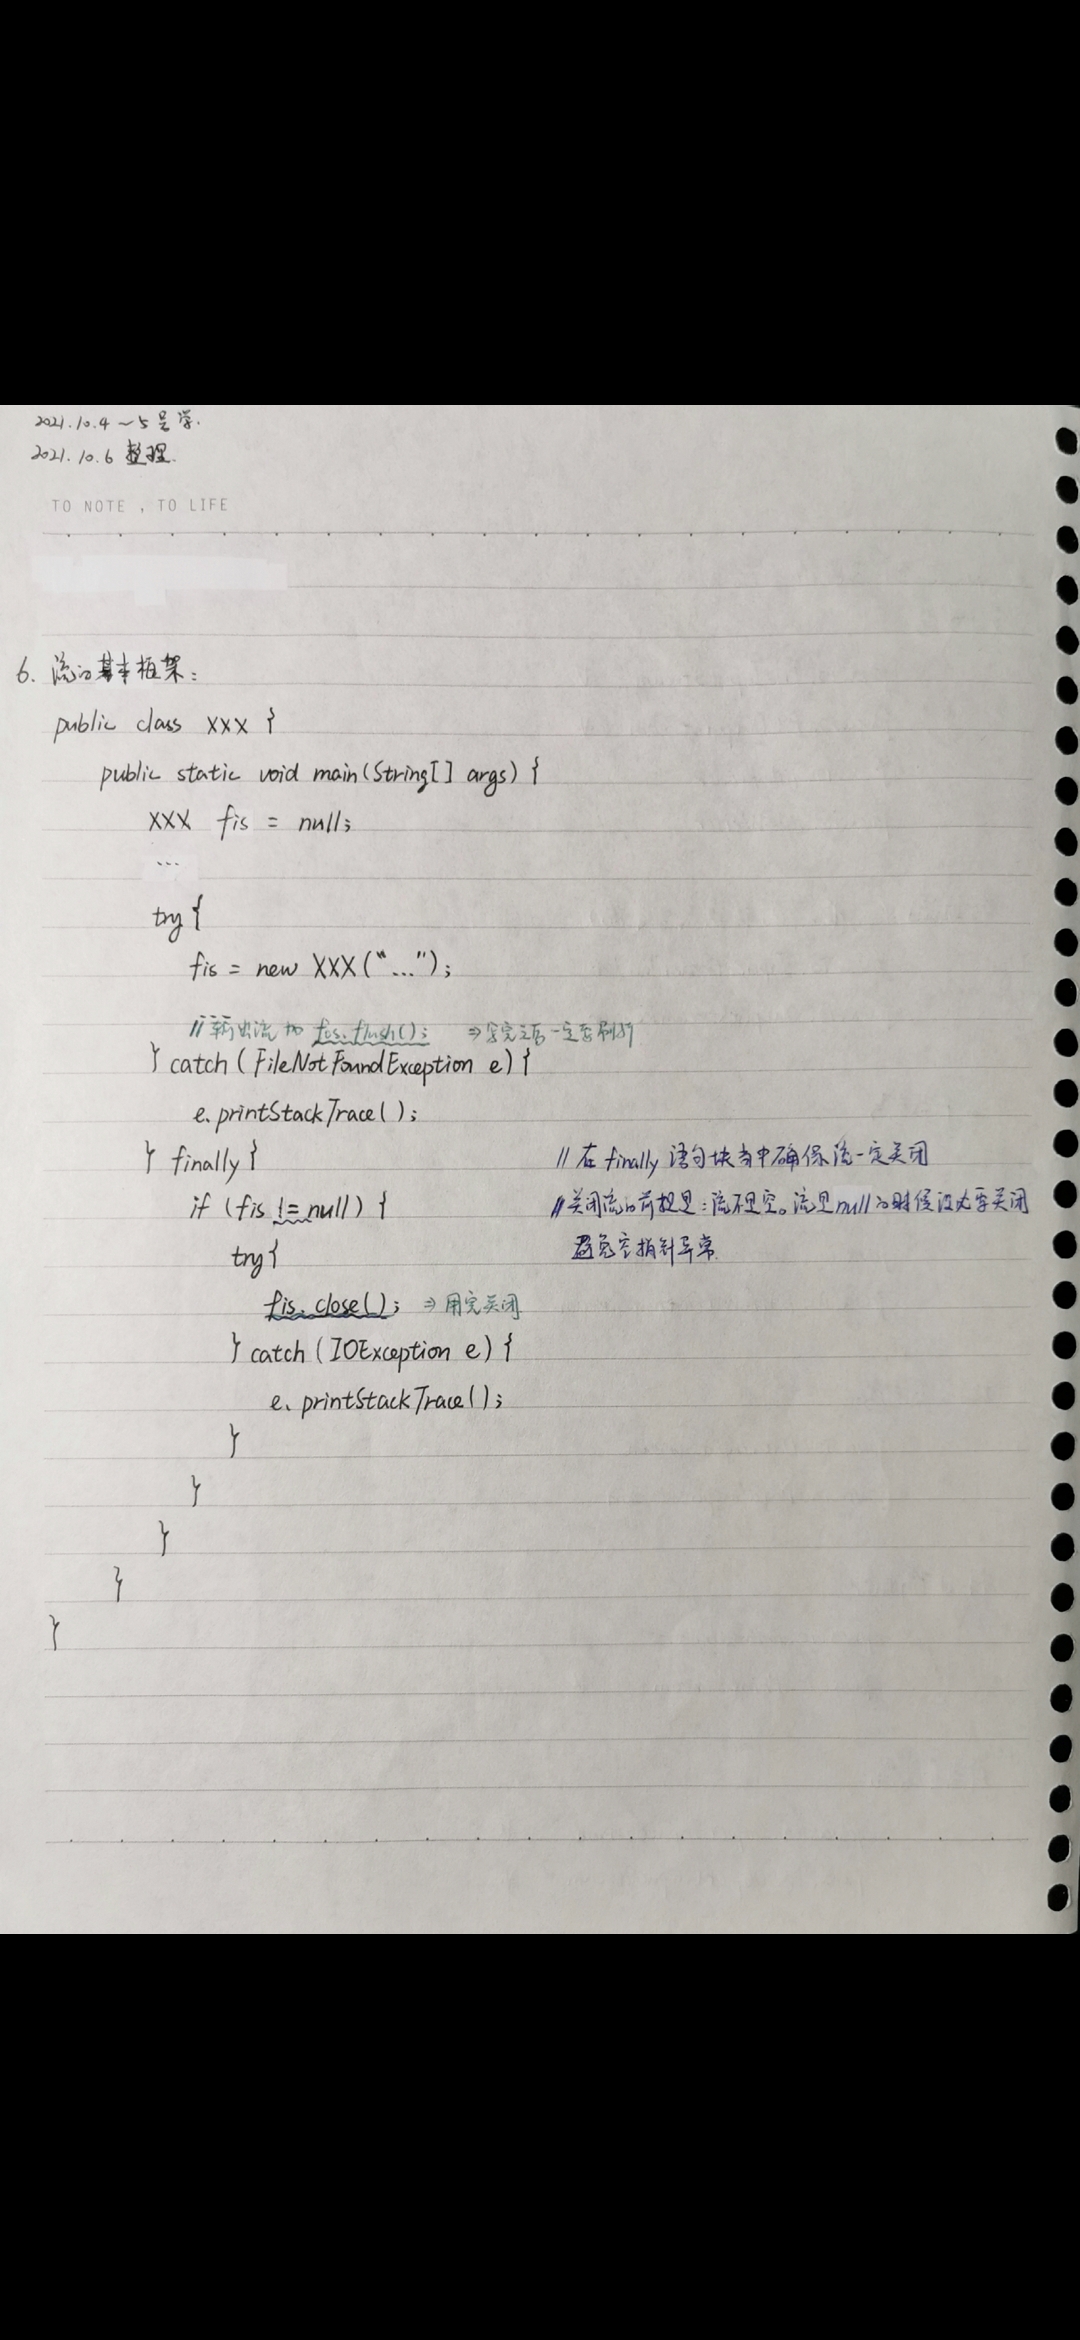 2021.10.4~5号学.
2021.10.6 整理.
TO NOTE , TO LIFE
6. 流的基本框架:
public class XXX {
public static void main(String[] args) {
XXX fis = null;
...
try{
fis = new XXX("...");
//输出流加 fos.flush(); ⇒写完之后一定要刷新
} catch (FileNotFoundException e) {
e.printStackTrace();
} finally { //在finally语句块当中确保流一定关闭
if (fis != null) { //关闭流的前提是:流不是空。流是null的时候没必要关闭
避免空指针异常.
try{
fis.close(); ⇒用完关闭
} catch (IOException e) {
e.printStackTrace();
}
}
}
}
}